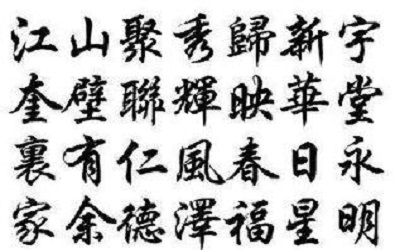 江山聚秀歸新宇
奎壁聯輝映華堂
裏有仁風春日永
家余德澤福星明